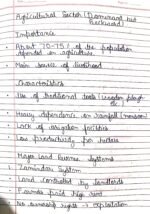 Agricultural Sector (Dominant but
Backward)
Importance
• About 70-75% of the population
depended on agriculture.
• Main source of livelihood
Characteristics
• Use of traditional tools (wooden plough
etc.)
• Heavy dependence on rainfall (monsoon)
• Lack of irrigation facilities
• Low productivity per hectare
Major Land Revenue Systems
1. Zamindari System
• Land controlled by landlords
• Farmers paid high rent
• No ownership rights → exploitation